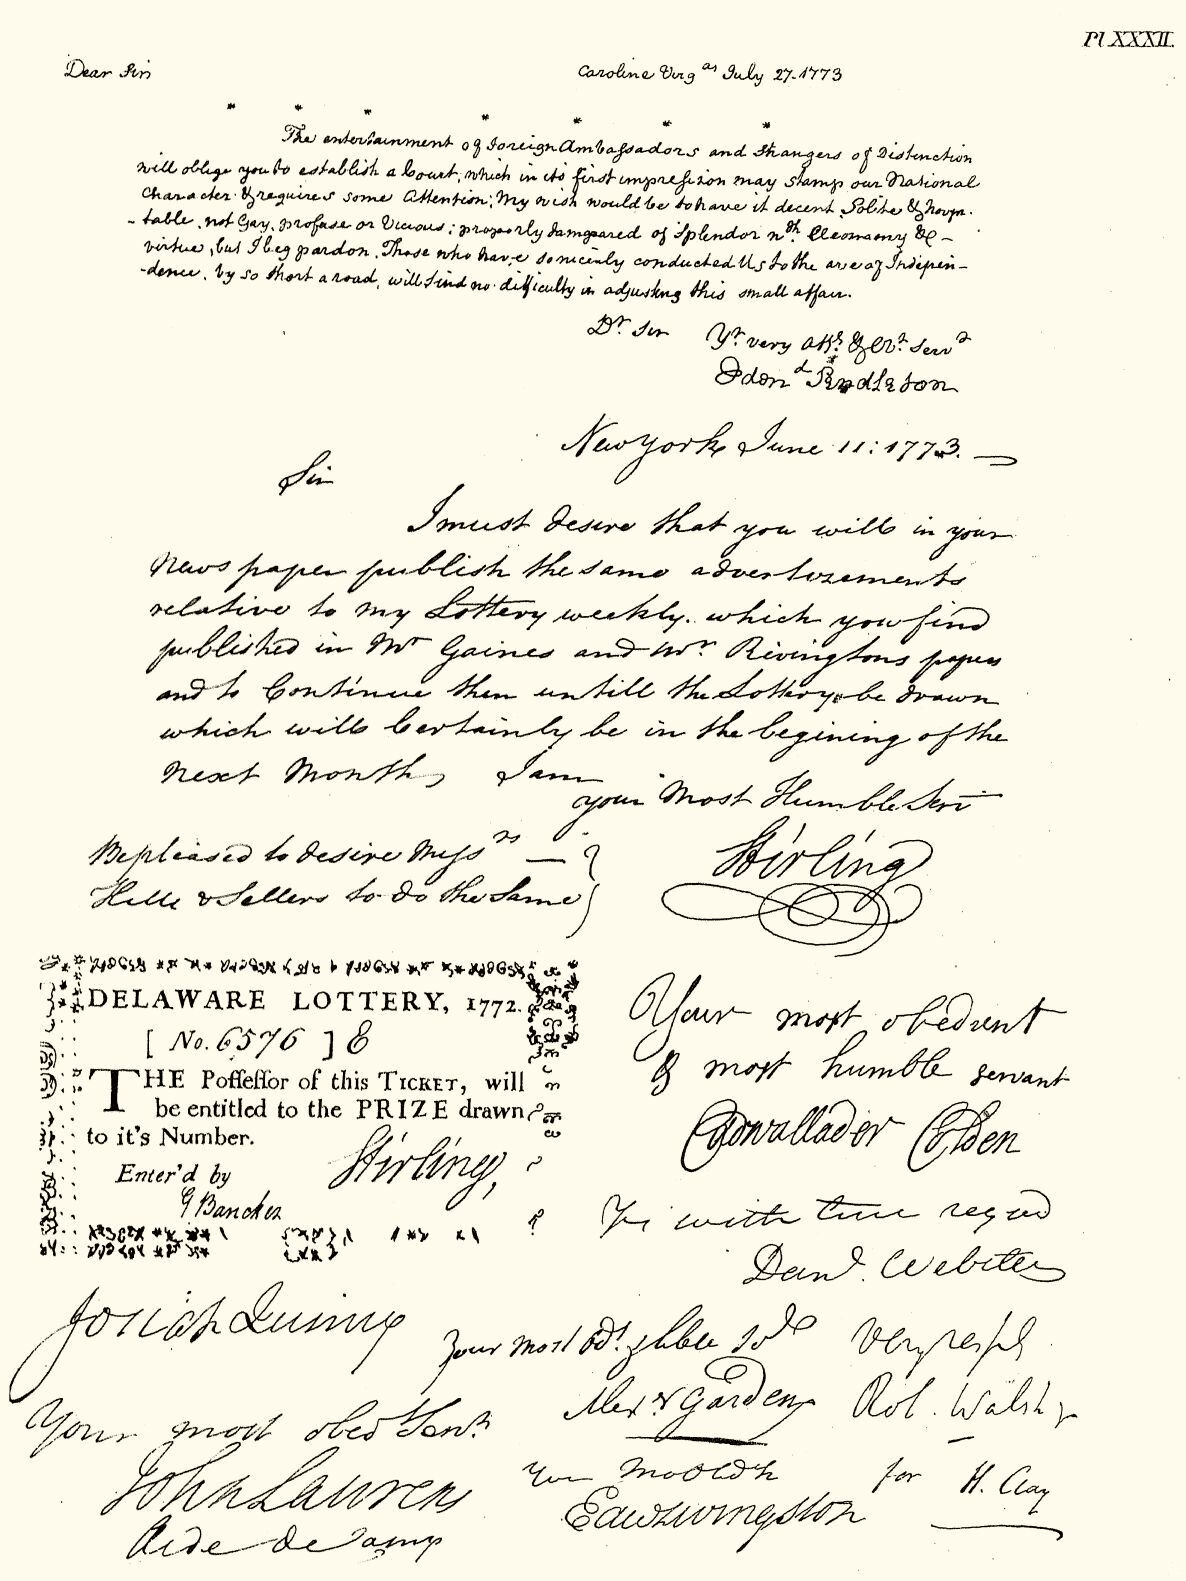 Pl XXXII.
Dear Sir
Caroline Virg as July 27. 1773
The entertainment of foreign Ambassadors and Strangers of Distinction
will oblige you to establish a Court, which in its first impression may stamp our National
Character & requires some Attention; My wish would be to have it decent, Polite &
-table, not Gay, profuse or Vicious; properly of Splendor &c -
virtue, but I beg pardon. Those who have so nicely conducted Us to the of Indepen-
-dence, by so short a road, will find no difficulty in adjusting this small affair.
Dr Sir Yr very Serv
Edmd Pendleton
New York June 11: 1773.
Sir
I must desire that you will in your
News paper publish the same advertizements
relative to my Lottery weekly. which you find
published in Mr Gaines and Mr Rivingtons papers
and to Continue them untill the Lottery be drawn
which will Certainly be in the begining of the
next Month, I am
your Most Humble Servt
Be pleased to desire Messrs
& Sellers to do the Same
Stirling
DELAWARE LOTTERY, 1772.
[ No. 6576 ] 8
THE Possessor of this TICKET, will
be entitled to the PRIZE drawn
to it's Number.
Enter'd by
Stirling,
G Bancker
Your most obedient
& most humble servant
Cadwallader Colden
Yrs with true regard
Danl. Webster
Josiah Quincy
Your most Obt. & hble
Alexr Garden
Very respfly
Rob. Walsh jr
Your most obed Servt.
John Laurens
Aide de Camp
Your
Edw Livingston
for H. Clay